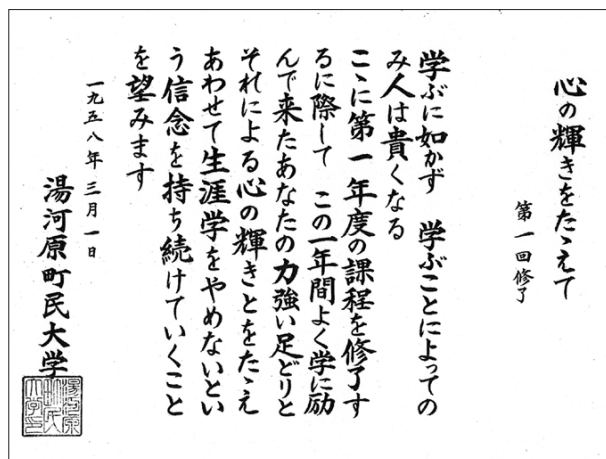 心の輝きをたゝえて
第一回修了
学ぶに如かず　学ぶことによっての
み人は貴くなる
こゝに第一年度の課程を修了す
るに際して　この一年間よく学に励
んで来たあなたの力強い足どりと
それによる心の輝きとをたゝえ
あわせて生涯学をやめないとい
う信念を持ち続けていくこと
を望みます
一九五八年三月一日
湯河原町民大学
湯河原
町民
大学印